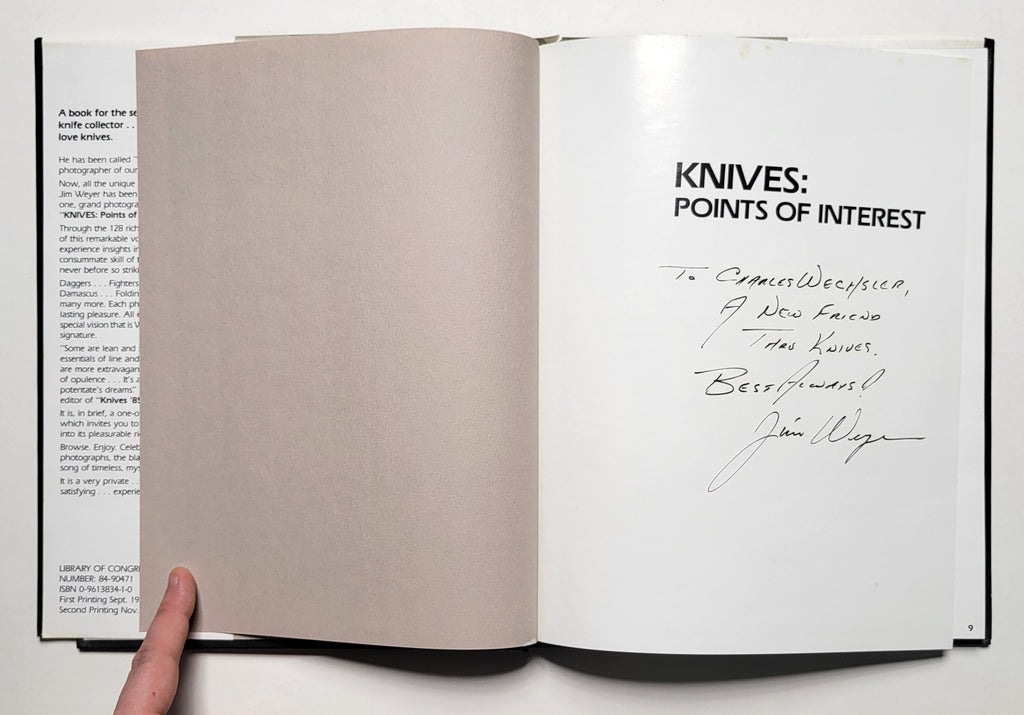 A book for the se
knife collector . .
love knives.
He has been called "
photographer of our
Now, all the unique
Jim Weyer has been
one, grand photogra
"KNIVES: Points of
Through the 128 rich
of this remarkable vo
experience insights in
consummate skill of t
never before so striki
Daggers . . . Fighters
Damascus . . . Foldin
many more. Each ph
lasting pleasure. All e
special vision that is W
signature.
"Some are lean and
essentials of line and
are more extravagan
of opulence . . . It's a
potentate's dreams."
editor of "Knives '85
It is, in brief, a one-o
which invites you to
into its pleasurable ri
Browse. Enjoy. Celeb
photographs, the bla
song of timeless, mys
It is a very private . .
satisfying . . . experie
LIBRARY OF CONGR
NUMBER: 84-90471
ISBN 0-9613834-1-0
First Printing Sept. 19
Second Printing Nov.
KNIVES:
POINTS OF INTEREST
To Charles Wechsler,
A New Friend
Thru Knives.
Best Always!
Jim Weyer
9